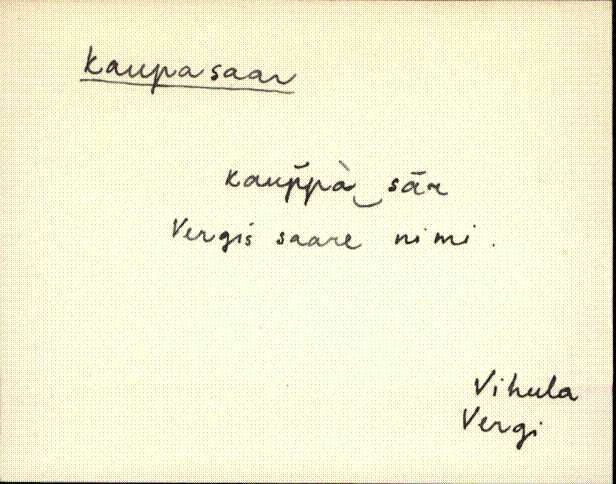 Kaupasaar
kaup̆pà‿sār
Vergis saare nimi.
Vihula
Vergi